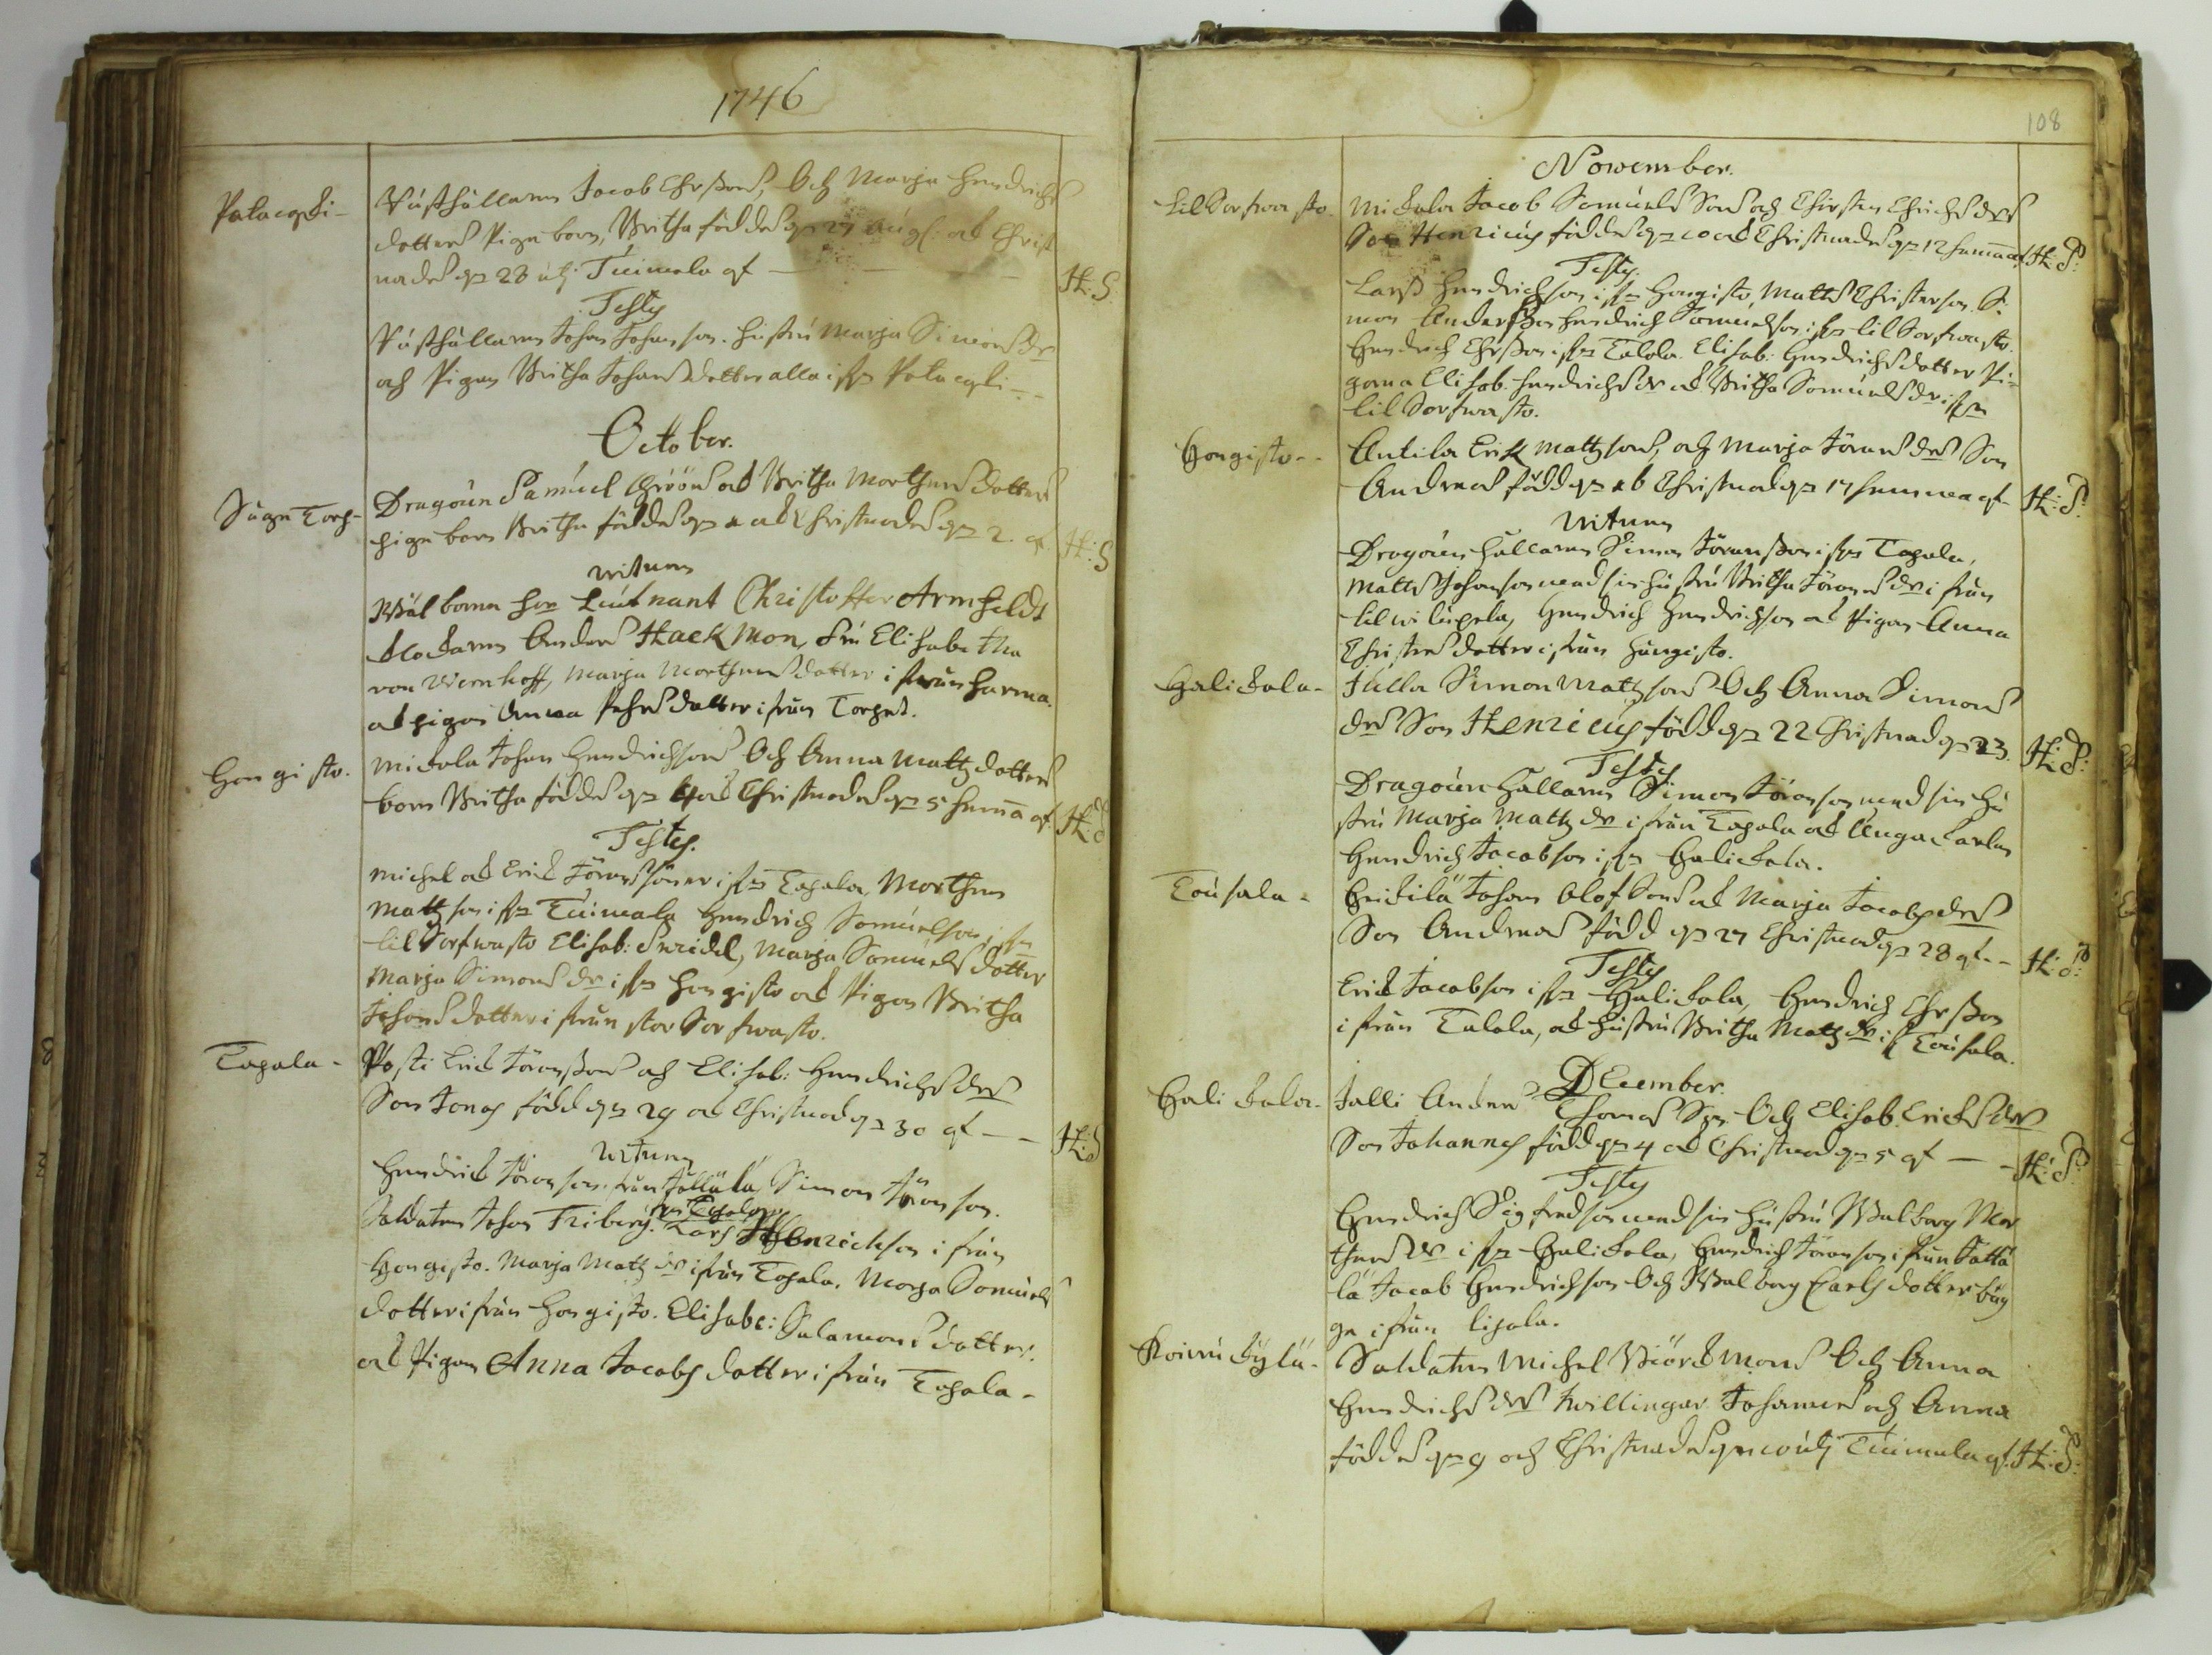 1746
Palacoski - Rusthållarens Jacob Ehrssons, Och Marja Hendrichs
dotters Pigu barn, Britha föddes d 27 Aug: och Christ
nades d 28 uti Tuimala af — H: S:
Testes
Rusthållaren Johan Johansson. hustru Marja Simons dr
och Pigan Britha Johans dotter alla ifrån Palacoski -
October.
Sågu Torp - Dragoun Samuel Gröön och Britha Morthens dotters
pigu barn Britha föddes d 1 och Christnades d 2. af H: S
vittnen
Wälborne herr Leutnant Christoffer Armfeldt
Klockaren Anders Hackmon, Fru Elisabetha
von Viernhoff, Marja Morthens dotter ifrån Harma.
och pigan Anna Pehrs dotter ifrån Torpet.
Hongisto. Mickola Johan Hendrichsons Och Anna Matz dotters
barn Britha föddes d 4 och Christnades d 5 hemma af H: S
Testes.
Michel och Erick Jöransöner ifrån Tapala, Morthen
Matzson ifrån Tuimala Hendrich Samuelson ifrån
lill Sorfwasto Elisab: Sneidel, Marja Samuels dotter
Marja Simons dr ifrån Hongisto och Pigan Britha
Johans dotter ifrån stor Sorfwasto.
Tapala - Posti Erich Jöransons och Elisab: Hendrichs drs
Son Jonas född d 29 och Christnad d 30 af — H: S
vittnen
Hendrich Jöranson. från Jällälä, Simon Jöranson.
frn Tapala
Soldaten Johan Friberg. Lars Henrichson ifrån
Hongisto. Marja Matz dr ifrån Tapala. Marja Samuels
dotter ifrån Hongisto. Elisabe: Salamons dotter.
och Pigan Anna Jacobs dotter ifrån Tapala -
108
Nowember.
Lil Sorfwasto. Mickola Jacob Samuels Sons och Christin Erichs drs
Son Henricus föddes d 10 och Christnades d 12 hemma af H: S:
Testes.
Lars Hendrichson ifrån Hongisto, Matts Christerson Si-
mon Andersson Hendrich Samuelson ifrn lil Sorfwasto.
Hendrich Ehrsson ifrn Talola. Elisab: Hendrichs dotter Pi-
gorna Elisab. Hendrichs dr och Britha Samuels dr ifrn
lil Sorfwasto.
Hongisto - Antila Erik Matzsons, och Marja Jörans drs Son
Andreas född d 16 Christnad d 17 hemma af H: S:
vittnen
Dragounhållaren Simon Jöransson ifrn Tapala,
Matts Johanson med sin hustru Britha Jörans dr ifrån
lil wilupela, Hendrich Hendrichsson och Pigan Anna
Christers dotter ifrån hungisto.
Halickala - Julla Simon Matzsons Och Anna Simons
drs Son Henricus född d 22 Christnad d 23. H: S:
Testes
Dragounhållaren Simon Jöranson med sin hu
stru Marja Matz dr ifrån Tapala och Unga Karlen
Hendrich Jacobson ifrn Halickala.
Tousala - Heickilä Johan Olofsons och Marja Jacobs drs
Son Andreas född d 27 Christnad d 28 af - H: S:
Testes
Erick Jacobson ifrn Halickala, Hendrich Ehrsson
ifrån Talola, och hustru Britha Matz dr if Tousala.
DEcember.
Halickala - Jalli Anders Thomas Son Och Elisab. Erichs drs
Son Johannes född d 4 och Christnad d 5 af — H: S:
Testes
Hendrich Sigfredson med sin hustru Walborg Mor
thens dr ifrn Halickala, Hendrich Jöranson ifrån Sattä
lä Jacob Hendrichson Och Walborg Carls dotter båg
ge ifrån lijala.
Koiwukylä - Soldaten Michel Biörckmons Och Anna
Hendrichs drs twillingar Johannes och Anna
föddes d 9 och Christnades d 10 uti Tuimala af H: S: